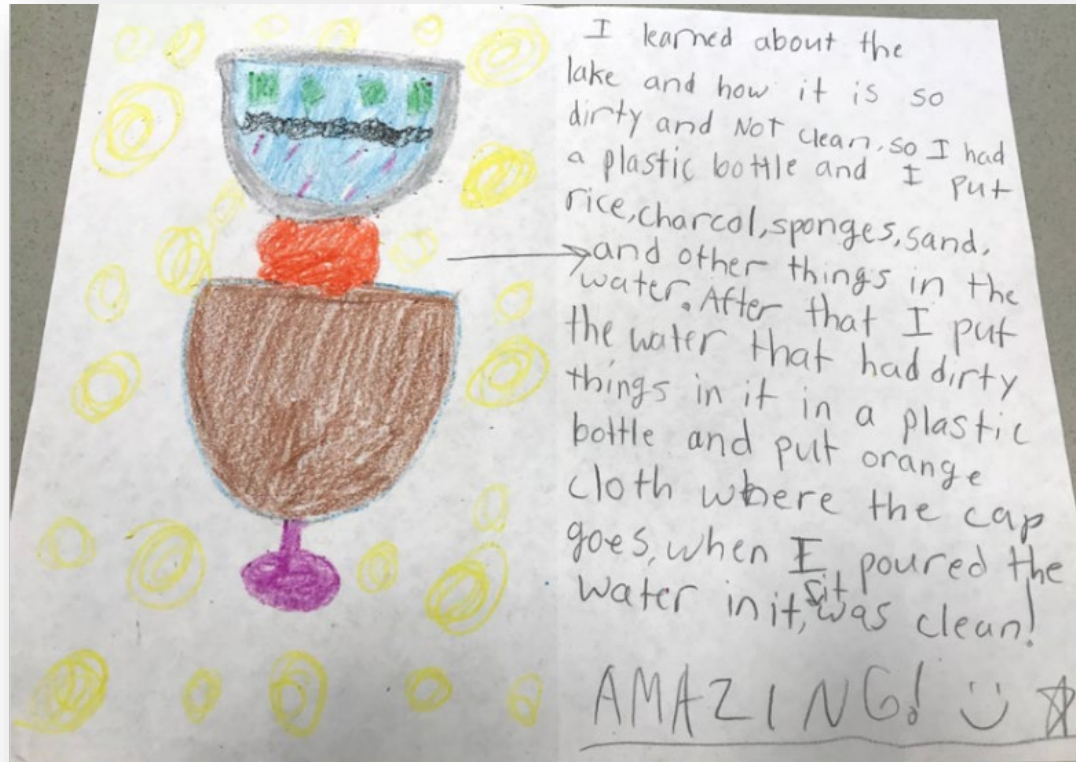 I learned about the
lake and how it is so
dirty and Not clean, so I had
a plastic bottle and I put
rice, charcol, sponges, sand,
and other things in the
water. After that I put
the water that had dirty
things in it in a plastic
bottle and put orange
cloth where the cap
goes, when I poured the
water in it, it was clean!
AMAZING!